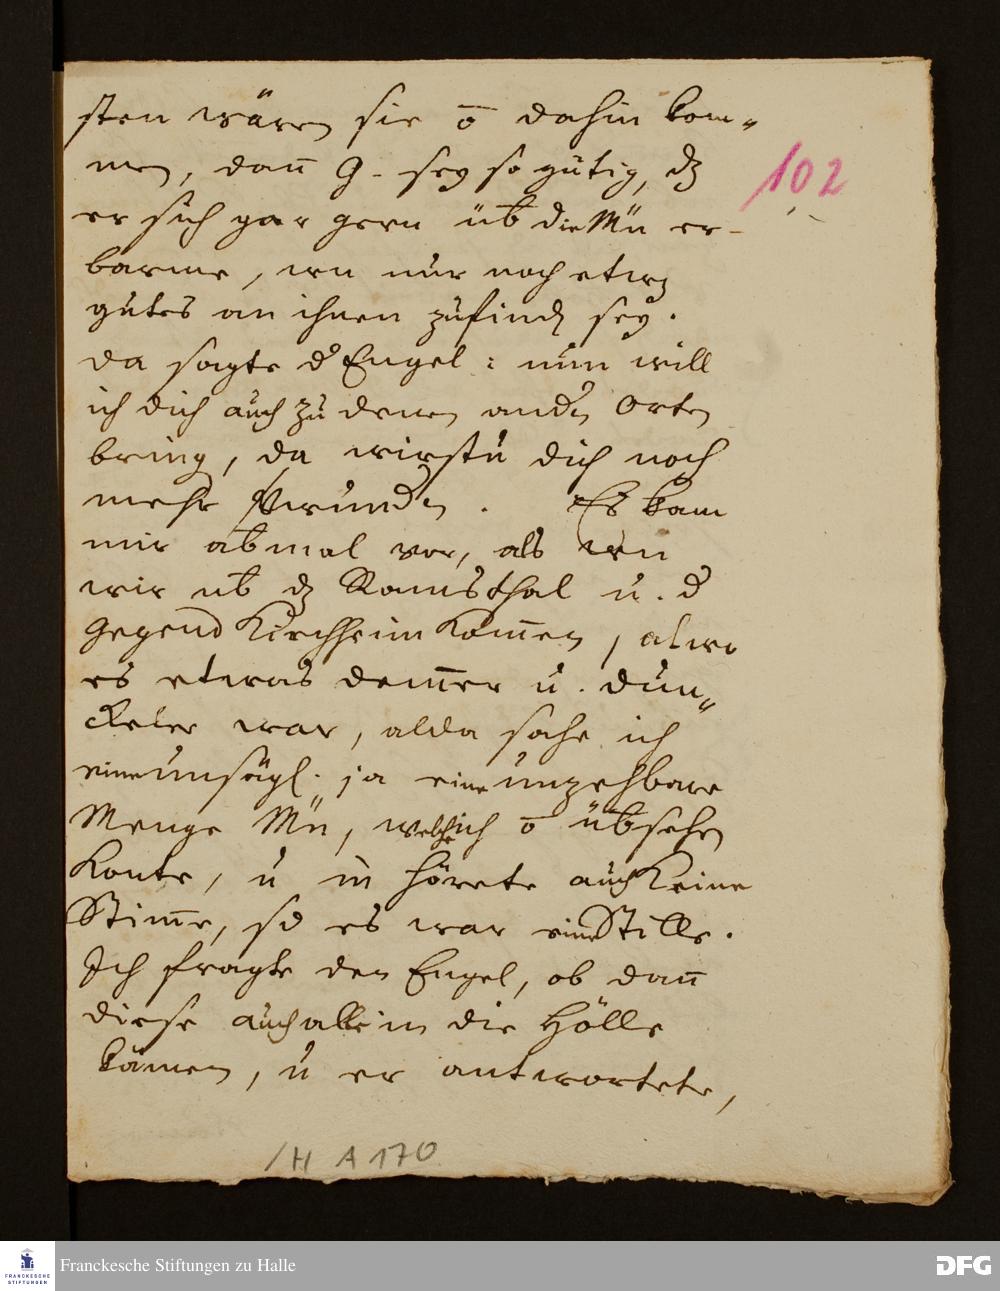 sten wären sie ō dahin kom„
men, dañ G. sey so gütig, dz
102
er sich gar gern üb die Mn̄ er-
barme, wn nur noch etwz
gutes an ihnen zufinden sey.
da sagte d' Engel: nun will
ich dich auch zu denen andn Orten
bring, da wirstu dich noch
mehr verwundn. Es kam
mir abmal vor, als wn
wir üb dz Ramsthal u. d'
gegend Kirchheim kom̄en, alwo
es etwas dem̄er u. dun„
ckeler war, alda sahe ich
eine unsägl. ja eine unzehlbare
Menge Mn̄, welche ich ō übsehen
konte, u in hörete auch keine
Stim̄e, sd es war eine Stille.
Ich fragte den Engel, ob dañ
diese auch alle in die Hölle
kämen, u er antwortete,
/H A 170
FRANCKESCHE
STIFTUNGEN
Franckesche Stiftungen zu Halle
DFG